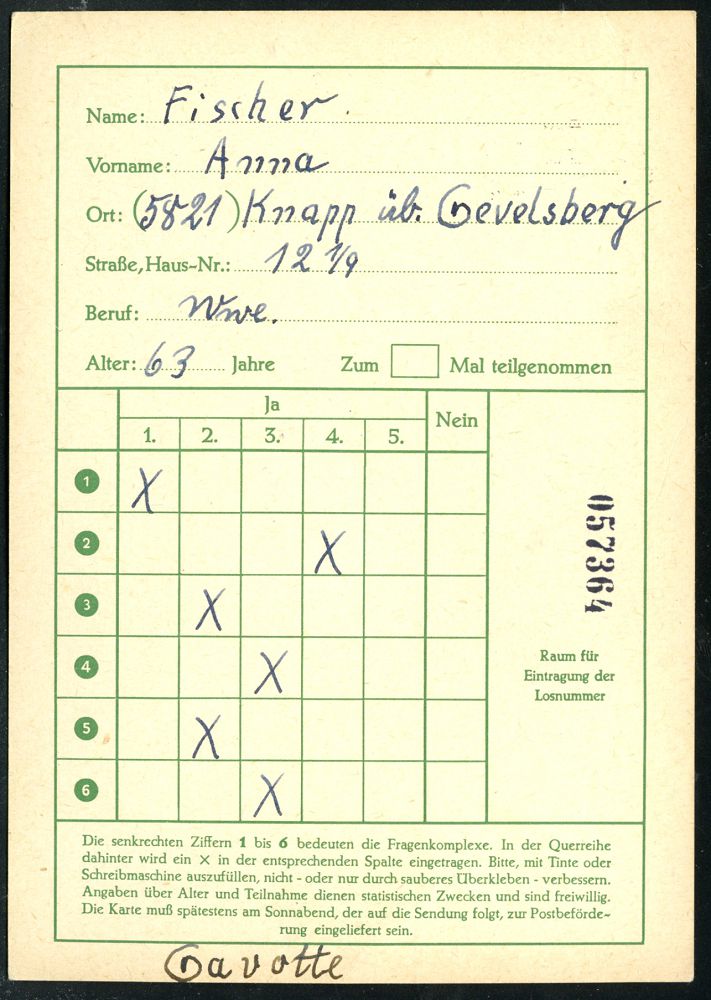 Name: Fischer
Vorname: Anna
Ort: (5821) Knapp üb. Gevelsberg
Straße, Haus-Nr.: 12 1/9
Beruf: Wwe.
Alter: 63 Jahre Zum Mal teilgenommen
Ja
Nein
1. 2. 3. 4. 5.
1 X
2 X
3 X
4 X
5 X
6 X
057364
Raum für
Eintragung der
Losnummer
Die senkrechten Ziffern 1 bis 6 bedeuten die Fragenkomplexe. In der Querreihe
dahinter wird ein × in der entsprechenden Spalte eingetragen. Bitte, mit Tinte oder
Schreibmaschine auszufüllen, nicht - oder nur durch sauberes Überkleben - verbessern.
Angaben über Alter und Teilnahme dienen statistischen Zwecken und sind freiwillig.
Die Karte muß spätestens am Sonnabend, der auf die Sendung folgt, zur Postbeförde-
rung eingeliefert sein.
Gavotte